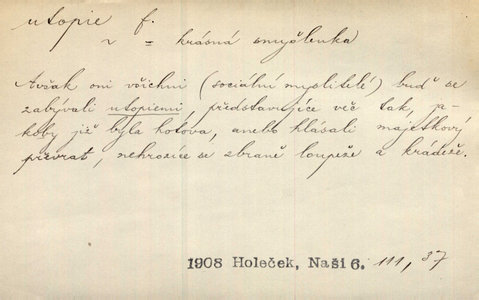 utopie f.
~ = krásná myšlenka
Avšak oni všichni (sociální myslitelé) buď se
zabývali utopiemi, představujíce věc tak, ja-
koby již byla hotova, anebo hlásali majetkový
převrat, nehrozíce se zbraně loupeže a krádeže.
1908 Holeček, Naši 6. 111, 37